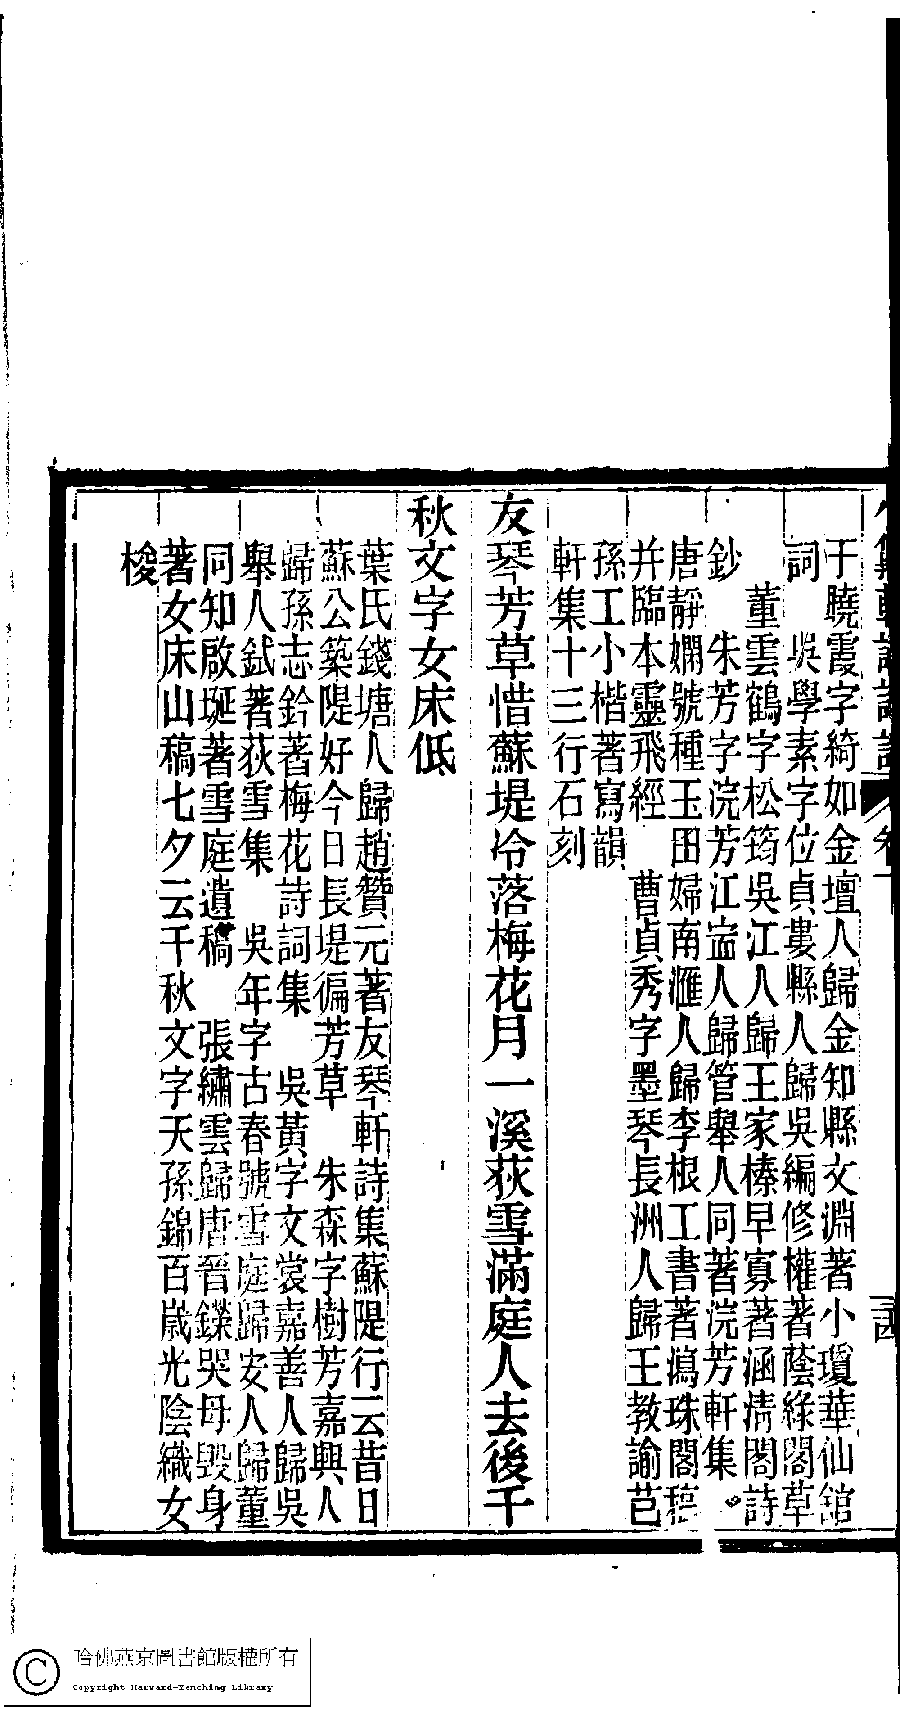 于曉霞字綺如金壇人歸金知縣文淵著小瓊華仙館
詞　吳學素字位貞婁縣人歸吳編修權著蔭綠閣草
董雲鶴字松筠吳江人歸王家榛早寡著涵清閣詩
鈔　朱芳字浣芳江甯人歸管舉人同著浣芳軒集
唐靜嫻號種玉田婦南滙人歸李根工書著鴻珠閣稿
幷臨本靈飛經　曹貞秀字墨琴長洲人歸王教諭芑
孫工小楷著寫韻
軒集十三行石刻
友琴芳草惜蘇堤冷落梅花月一溪荻雪滿庭人去後千
秋文字女床低
葉氏錢塘人歸趙贊元著友琴軒詩集蘇隄行云昔日
蘇公築隄好今日長堤徧芳草　朱森字樹芳嘉興人
歸孫志鈐著梅花詩詞集　吳黃字文裳嘉善人歸吳
舉人弑著荻雪集　吳年字古春號雪庭歸安人歸董
同知啟埏著雪庭遺稿　張繡雲歸唐晉鑅哭母毀身
著女床山稿七夕云千秋文字天孫錦百歲光陰織女
梭
哈佛燕京圖書館版權所有
Copyright Harvard-Yenching Library